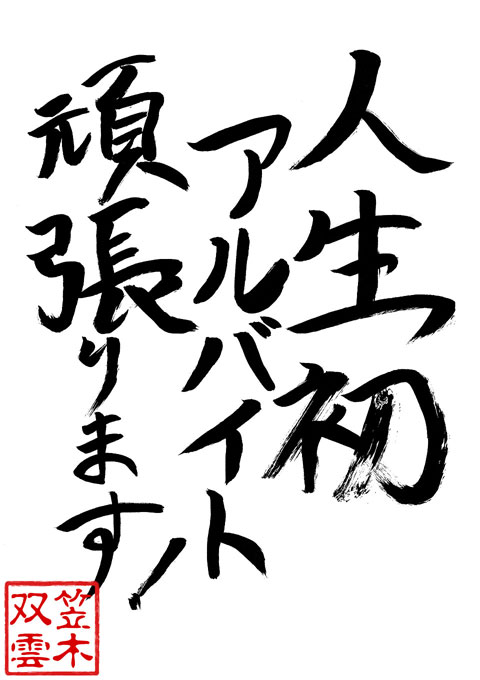 人生初
アルバイト
頑張ります!
笠木
双雲